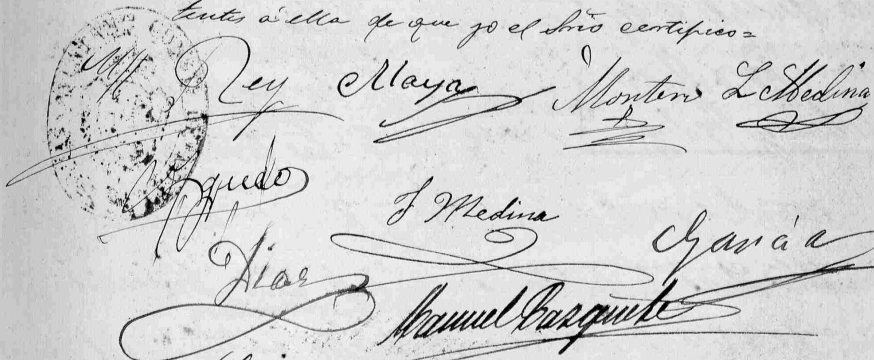 tentes á ella de que yo el Srio certifico=
Rey Maya Montero L Medina
Agudo J Medina García
Diaz Manuel